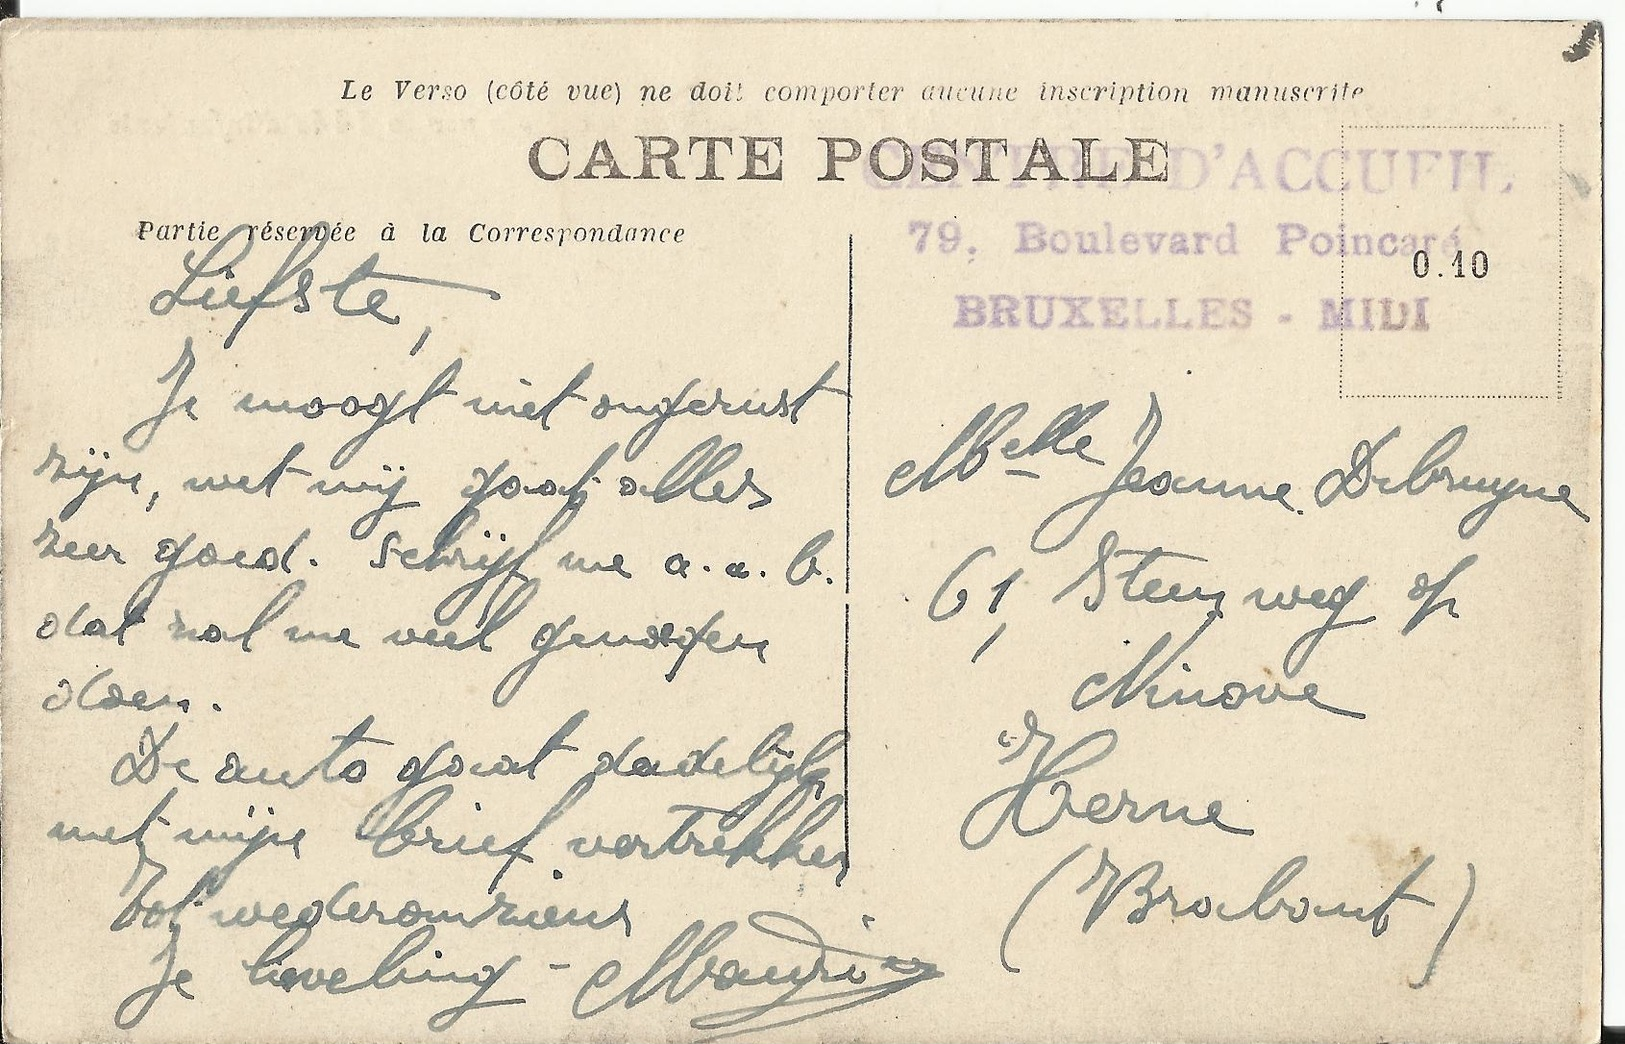 Le Verso (côté vue) ne doit comporter aucune inscription manuscrite
CARTE POSTALE
CENTRE D'ACCUEIL
79, Boulevard Poincaré
BRUXELLES - MIDI
0.10
Partie réservée à la Correspondance
Liefste,
Je moogt niet ongerust
zijn, met mij gaat alles
zeer goed. Schrijf me a.u.b.
dat zal me veel genoegen
doen.
De auto gaat dadelijk
met mijn brief vertrekken
Tot wederomziens
Je lieveling -
Melle Jeanne Debruyne
61, Steenweg op
Ninove
Herne
(Brabant)